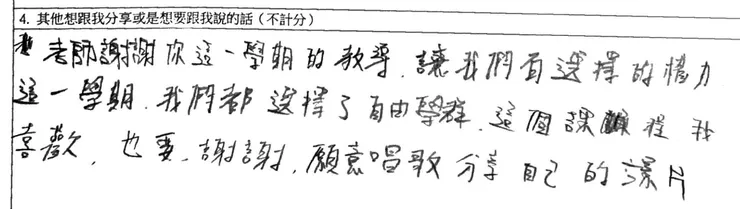 4. 其他想跟我分享或是想要跟我說的話（不計分）
老師謝謝你這一學期的教導，讓我們有選擇的權力
這一學期，我們都選擇了自由學群，這個課程我
喜歡，也要，謝謝，願意唱歌分享自己的影片